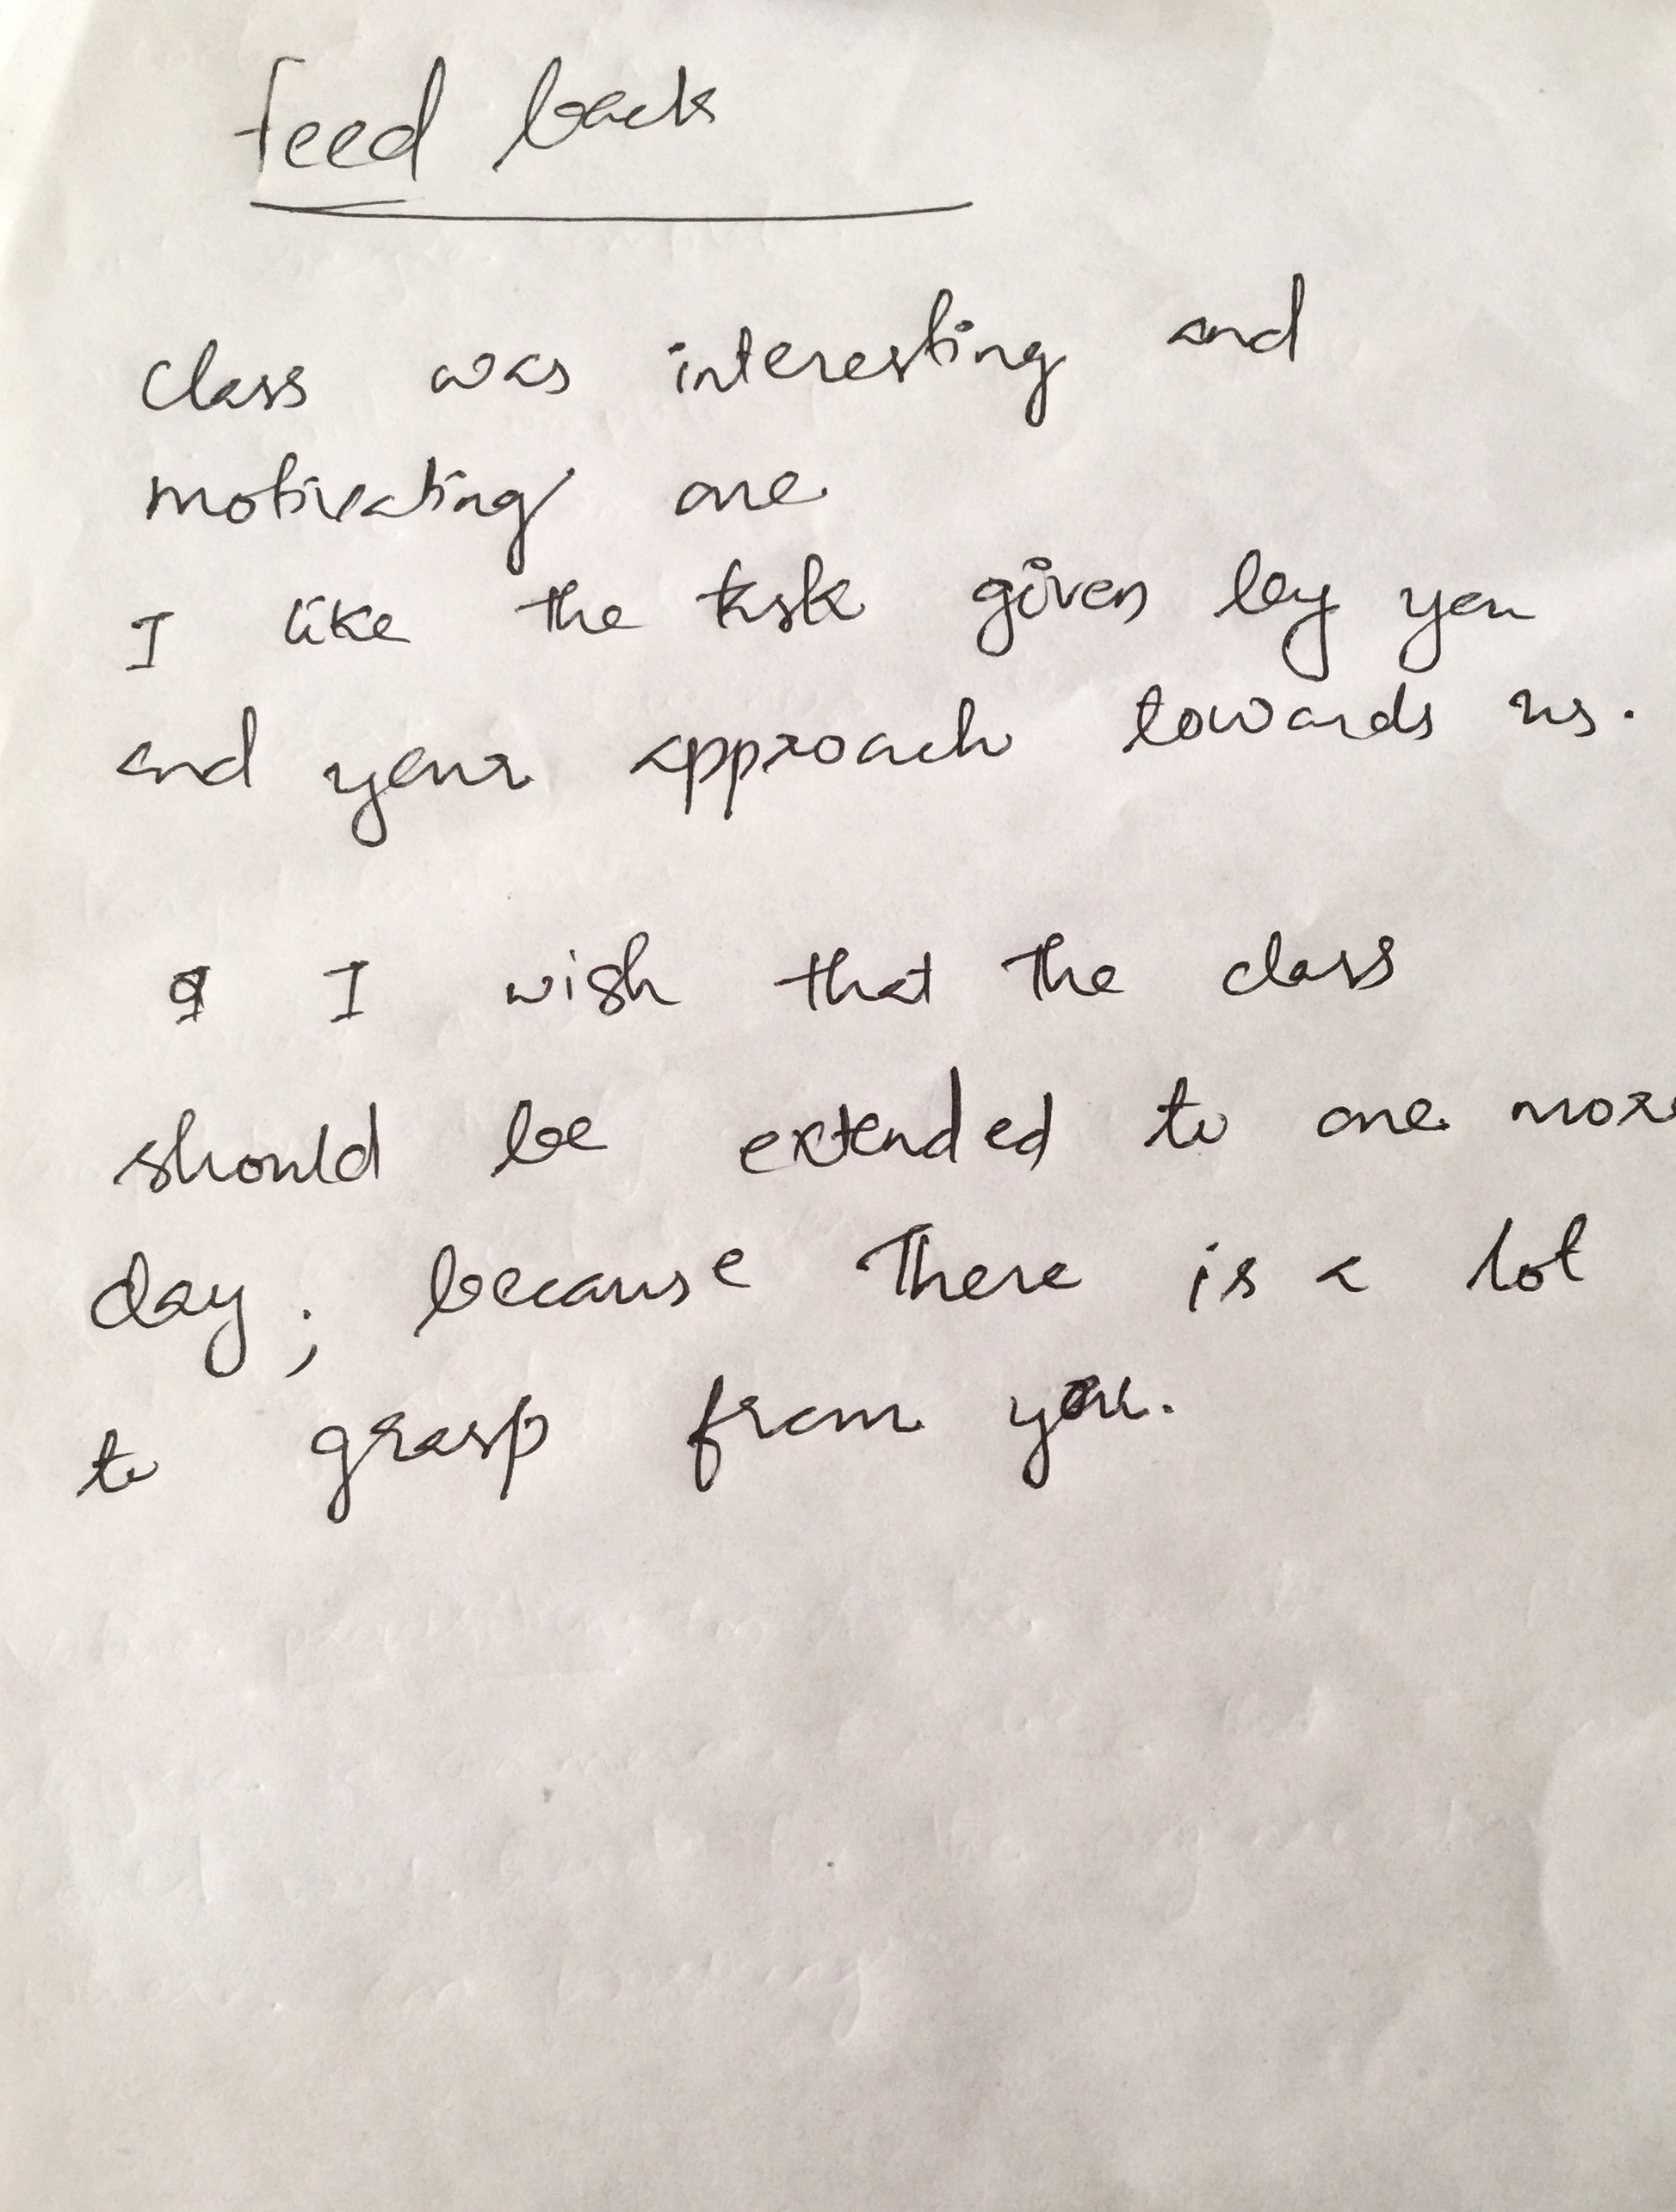 Feed back
Class was interesting and
motivating one
I like the task given by you
and your approach towards us.
I wish that the class
should be extended to one more
day; because There is a lot
to grasp from you.